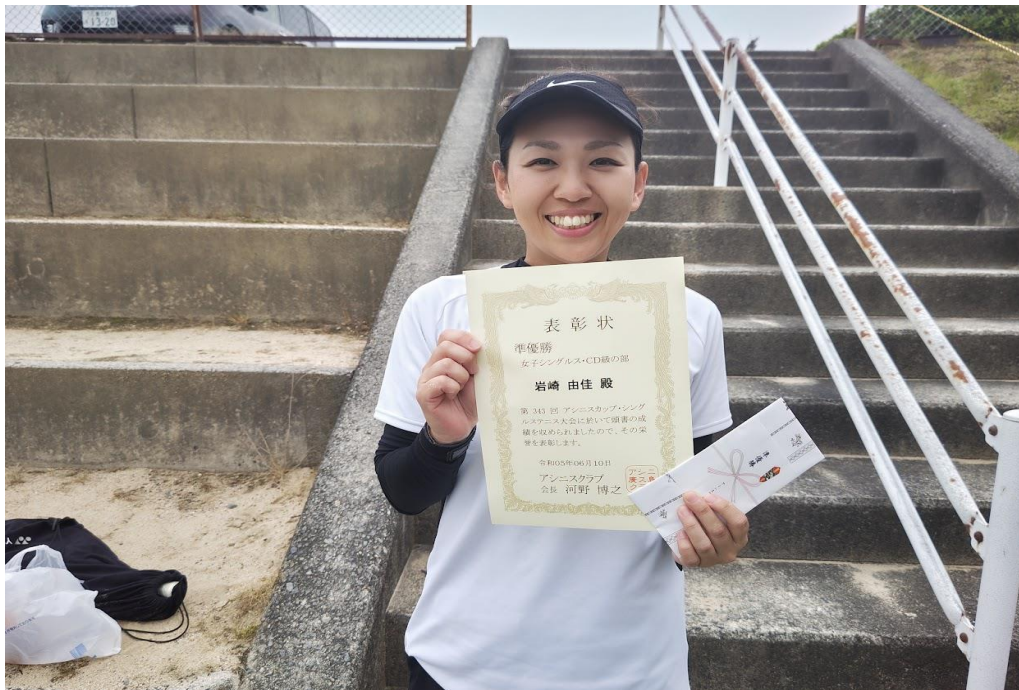 13-20
表彰状
準優勝
女子シングルス・CD級の部
岩崎 由佳 殿
第 343 回 アシニスカップ・シング
ルステニス大会に於いて頭書の成
績を収められましたので、その栄
誉を表彰します。
令和05年06月10日
アシニスクラブ
会長 河野 博之
準優勝